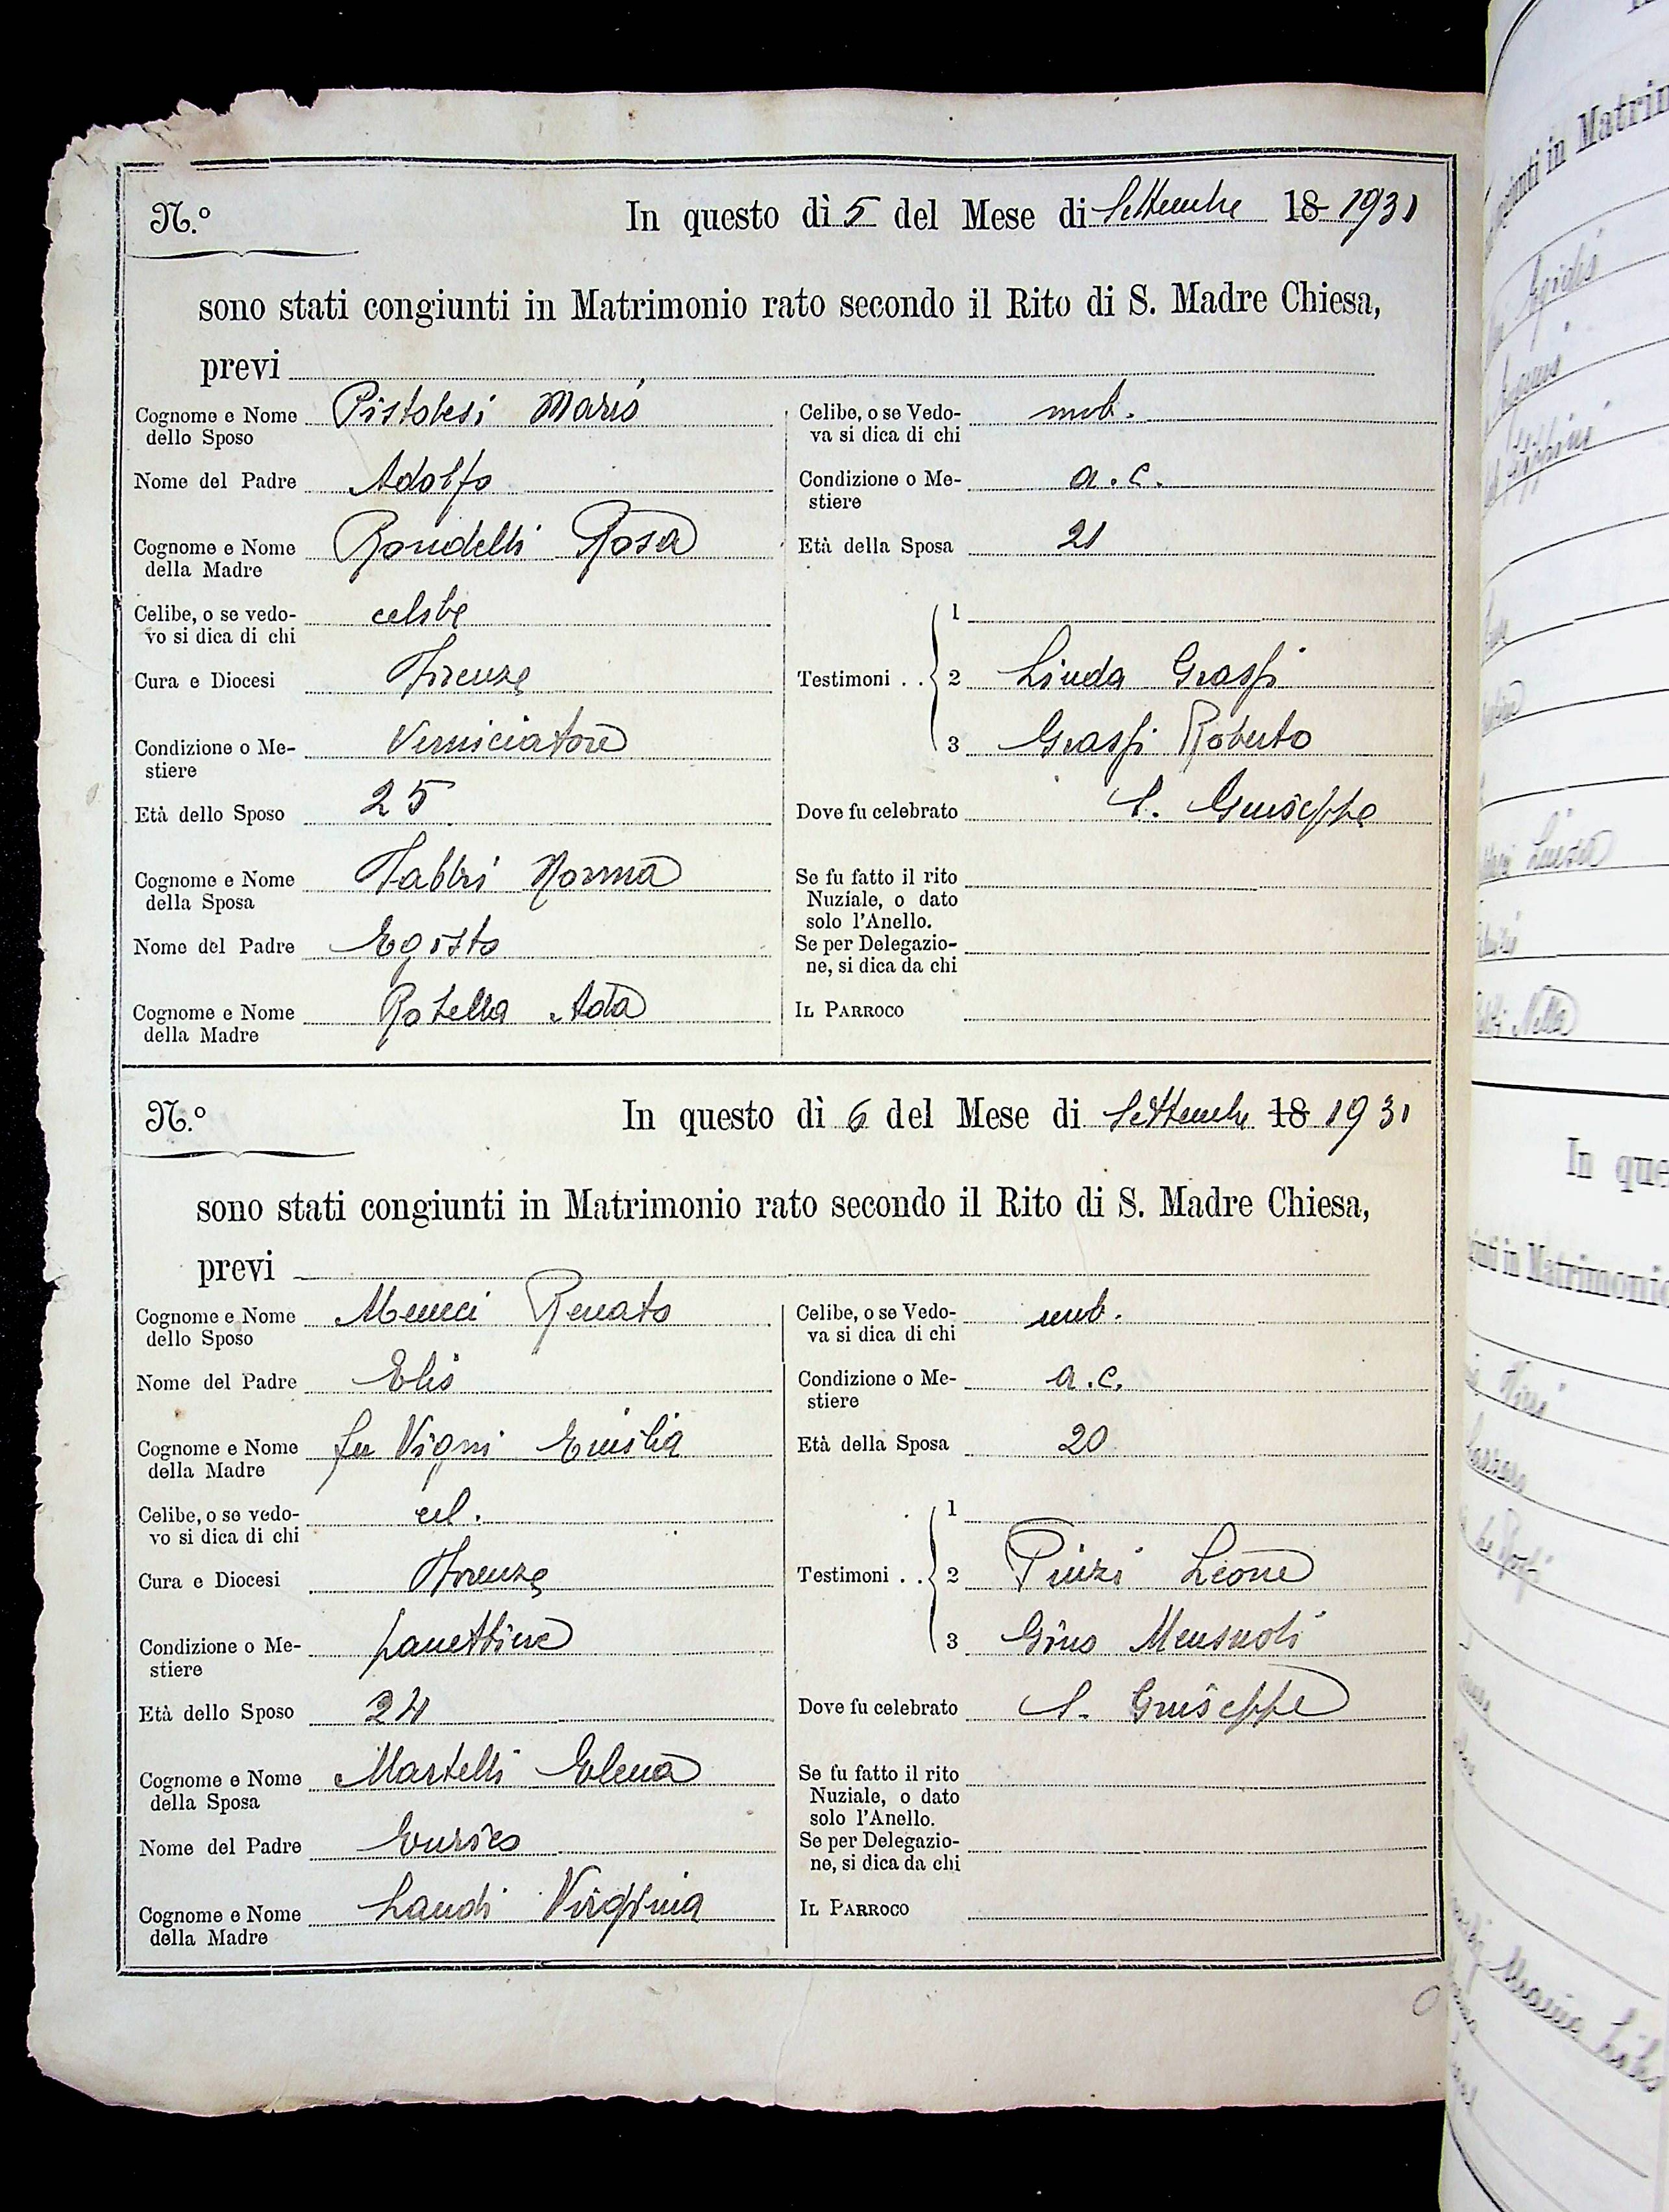 N.º In questo dì 5 del Mese di Settembre 18 1931
sono stati congiunti in Matrimonio rato secondo il Rito di S. Madre Chiesa,
previ
Cognome e Nome dello Sposo Pistolesi Mario
Nome del Padre Adolfo
Cognome e Nome della Madre Rondelli Rosa
Celibe, o se vedovo si dica di chi celibe
Cura e Diocesi Firenze
Condizione o Mestiere Verniciatore
Età dello Sposo 25
Cognome e Nome della Sposa Fabbri Norma
Nome del Padre Egisto
Cognome e Nome della Madre Rotella Ada
Celibe, o se Vedova si dica di chi nub.
Condizione o Mestiere a.c.
Età della Sposa 21
Testimoni . . 1
2 Linda Graffi
3 Graffi Roberto
Dove fu celebrato S. Giuseppe
Se fu fatto il rito Nuziale, o dato solo l'Anello.
Se per Delegazione, si dica da chi
IL PARROCO
N.º In questo dì 6 del Mese di Settembre 18 1931
sono stati congiunti in Matrimonio rato secondo il Rito di S. Madre Chiesa,
previ
Cognome e Nome dello Sposo Menici Renato
Nome del Padre Elis
Cognome e Nome della Madre fu Vigni Emilia
Celibe, o se vedovo si dica di chi cel.
Cura e Diocesi Firenze
Condizione o Mestiere
Età dello Sposo 24
Cognome e Nome della Sposa Martelli Elena
Nome del Padre Enrico
Cognome e Nome della Madre Landi Virginia
Celibe, o se Vedova si dica di chi nub.
Condizione o Mestiere a.c.
Età della Sposa 20
Testimoni . . 1
2 Pinzi Leone
3 Gino
Dove fu celebrato S. Giuseppe
Se fu fatto il rito Nuziale, o dato solo l'Anello.
Se per Delegazione, si dica da chi
IL PARROCO